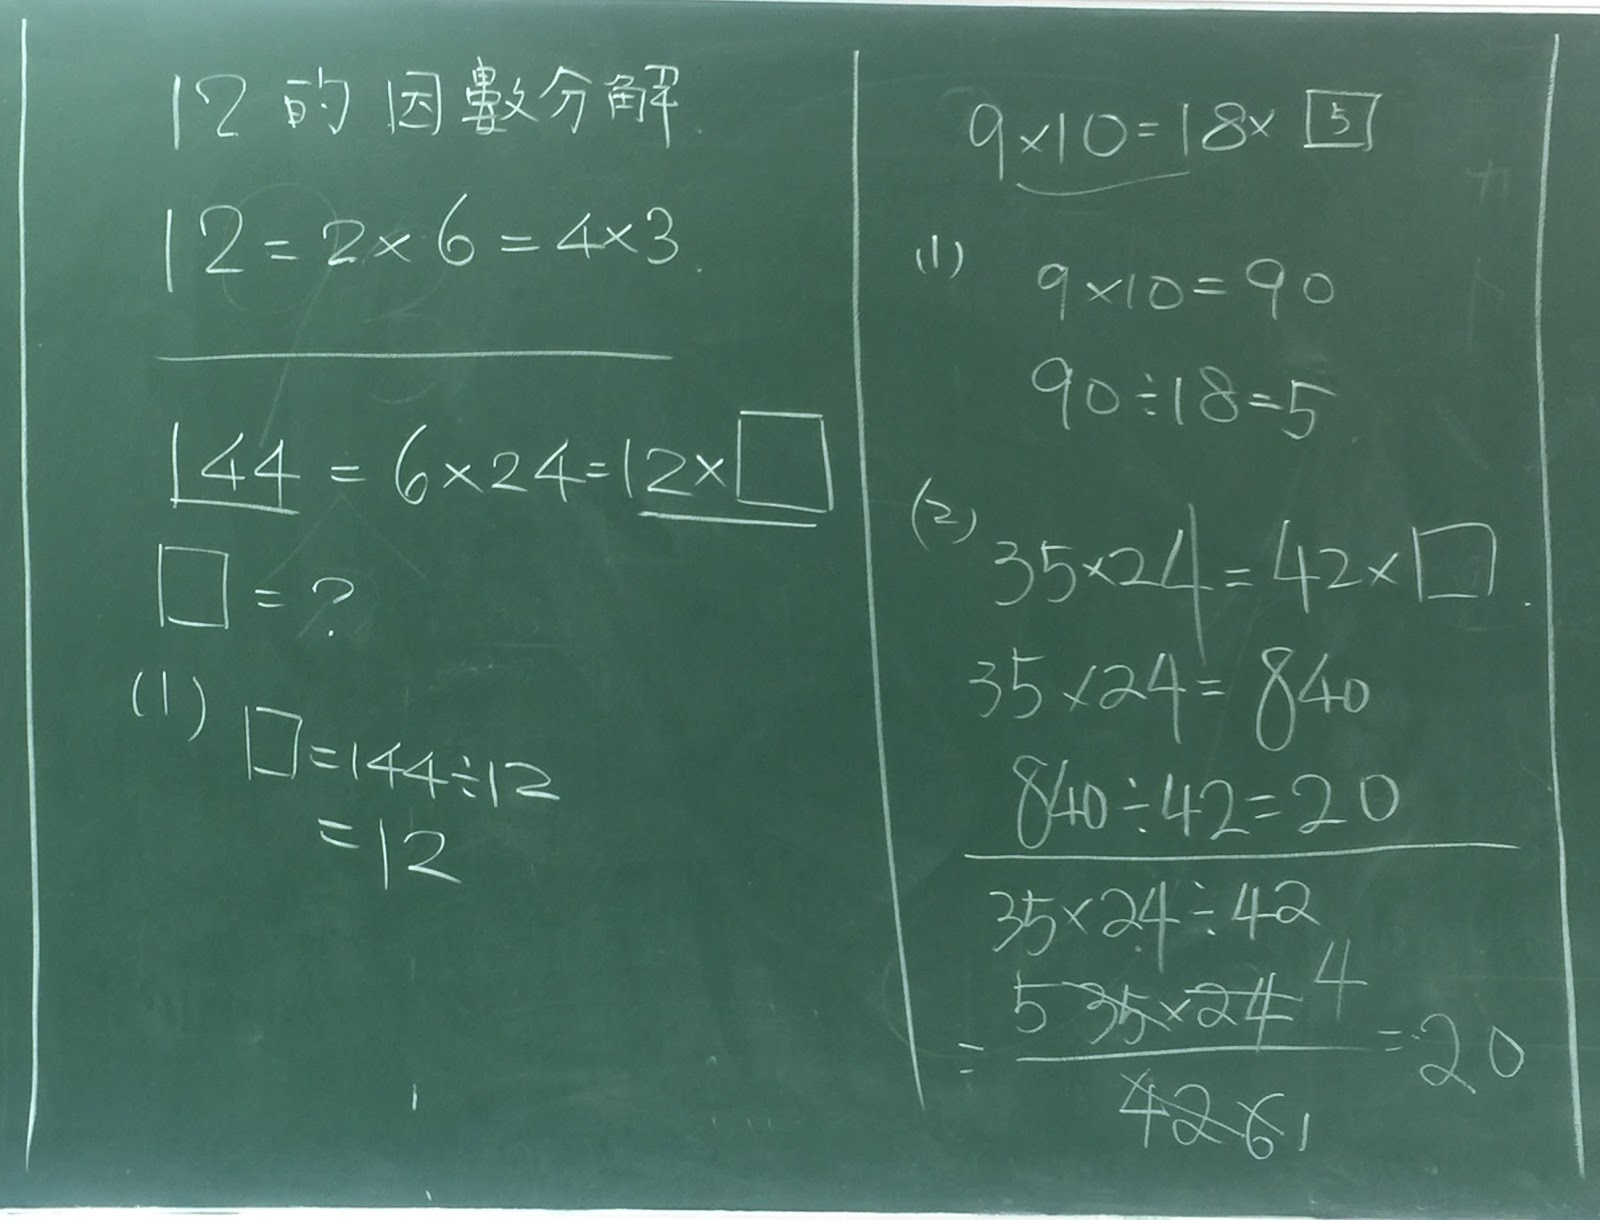 12的因數分解
12=2×6=4×3
144=6×24=12×□
□=?
(1)
□=144÷12
=12
9×10=18×5
(1) 9×10=90
90÷18=5
(2) 35×24=42×□
35×24=840
840÷42=20
35×24÷42
5 35×24 4
= =20
42 6 1